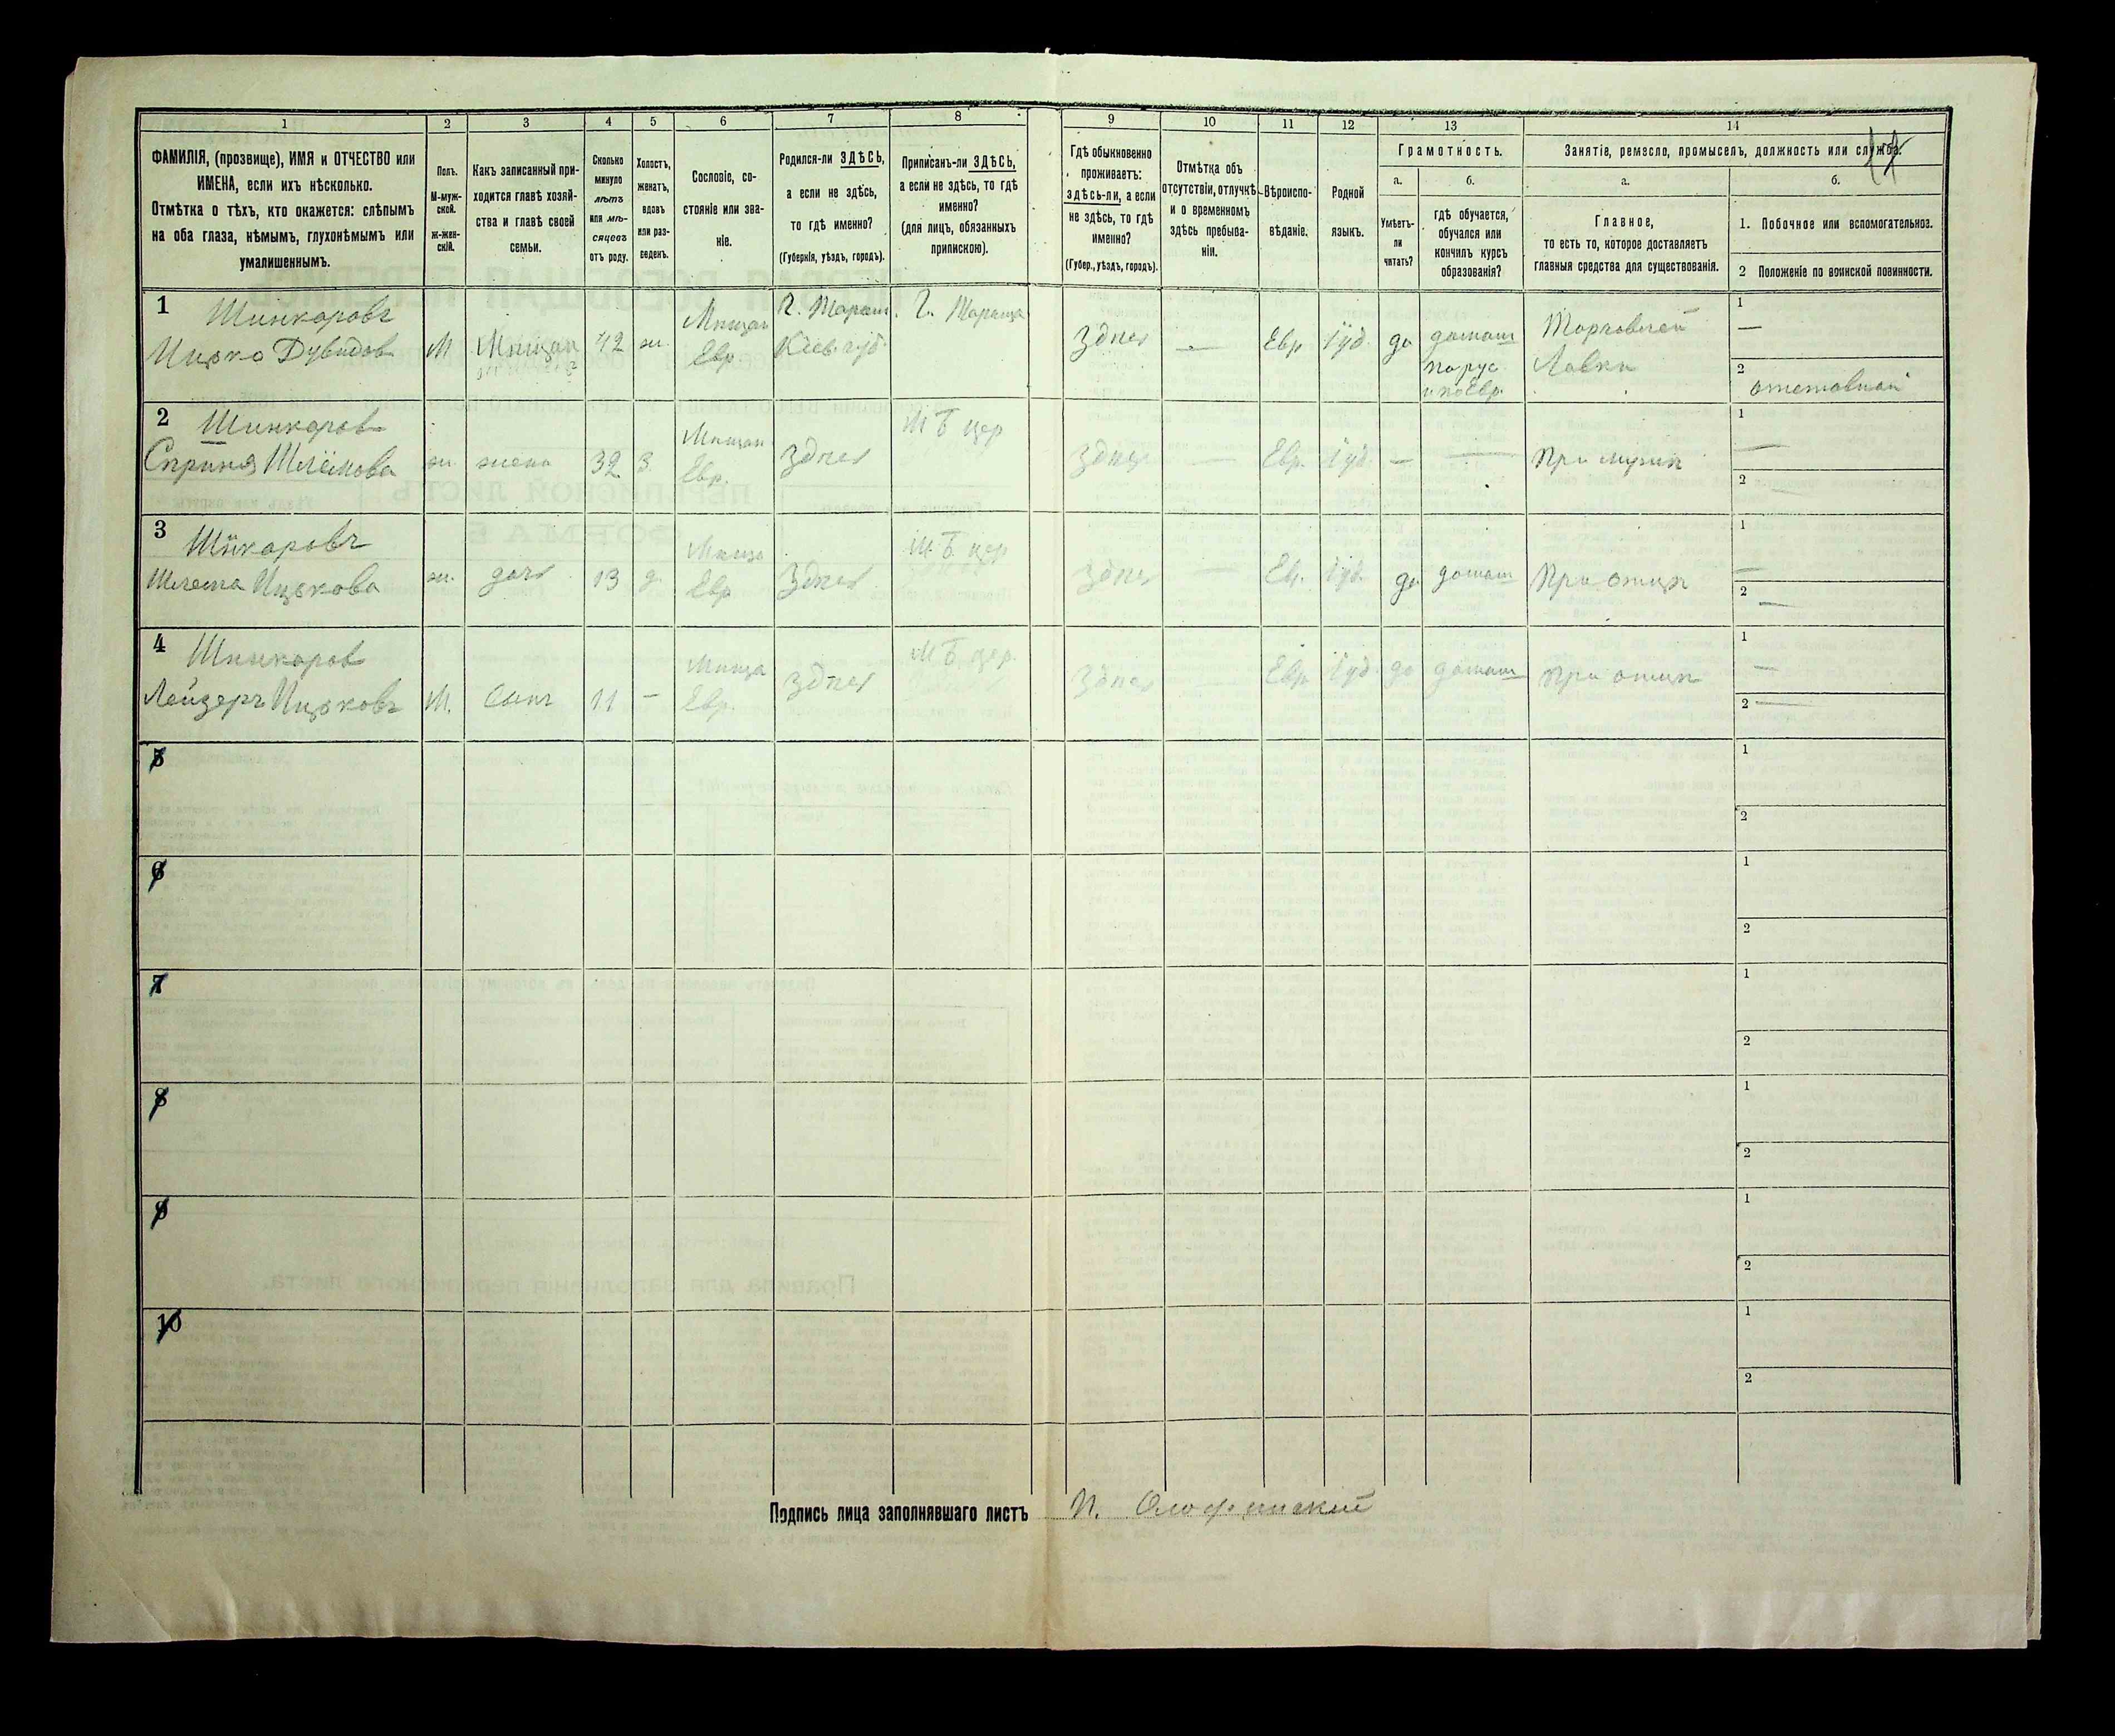 1 2 3 4 5 6 7 8 9 10 11 12 13 14
ФАМИЛІЯ, (прозвище), ИМЯ и ОТЧЕСТВО или
ИМЕНА, если ихъ нѣсколько.
Отмѣтка о тѣхъ, кто окажется: слѣпымъ
на оба глаза, нѣмымъ, глухонѣмымъ или
умалишеннымъ.
Полъ.
М-муж-
ской.
Ж-жен-
скій.
Какъ записанный при-
ходится главѣ хозяй-
ства и главѣ своей
семьи.
Сколько
минуло
лѣтъ
или мѣ-
сяцевъ
отъ роду.
Холостъ,
женатъ,
вдовъ
или раз-
веденъ.
Сословіе, со-
стояніе или зва-
ніе.
Родился-ли ЗДѢСЬ,
а если не здѣсь,
то гдѣ именно?
(Губернія, уѣздъ, городъ).
Приписанъ-ли ЗДѢСЬ,
а если не здѣсь, то гдѣ
именно?
(для лицъ, обязанныхъ
припискою).
Гдѣ обыкновенно
проживаетъ:
здѣсь-ли, а если
не здѣсь, то гдѣ
именно?
(Губер., уѣздъ, городъ).
Отмѣтка объ
отсутствіи, отлучкѣ
и о временномъ
здѣсь пребыва-
ніи.
Вѣроиспо-
вѣданіе.
Родной
языкъ.
Грамотность.
а.
Умѣетъ-
ли
читать?
б.
гдѣ обучается,
обучался или
кончилъ курсъ
образованія?
Занятіе, ремесло, промыселъ, должность или служба.
а.
Главное,
то есть то, которое доставляетъ
главныя средства для существованія.
б.
1. Побочное или вспомогательное.
2 Положеніе по воинской повинности.
1 Шинкаровъ
Ицько Дувидов М 42 ж. Мѣщан Евр. Г. Таращ. Кіев. губ Г. Тараща Здѣсь — Евр Іуд. да домаш по рус и по Евр. Торговлей Лавки
1 —
2
2 Шинкаров
Шлёмова ж. жена 32 З. Мѣщан Евр. Здѣсь М Б цер Здѣсь — Евр. Іуд. — — При мужѣ
1 —
2 —
3 Шінкаровъ
Ицькова ж. дочь 13 д. Мѣща Евр Здѣсь М. Б. цер Здѣсь — Ев. Іуд. да домаш При отцѣ
1 —
2 —
4 Шинкаров
Лейзеръ Ицьковъ М. Сынъ 11 — Мѣща Евр. Здѣсь М Б. цер. Здѣсь — Евр. Іуд. да домаш при отцѣ
1 —
2 —
5
1
2
6
1
2
7
1
2
8
1
2
9
1
2
10
1
2
Подпись лица заполнявшаго листъ